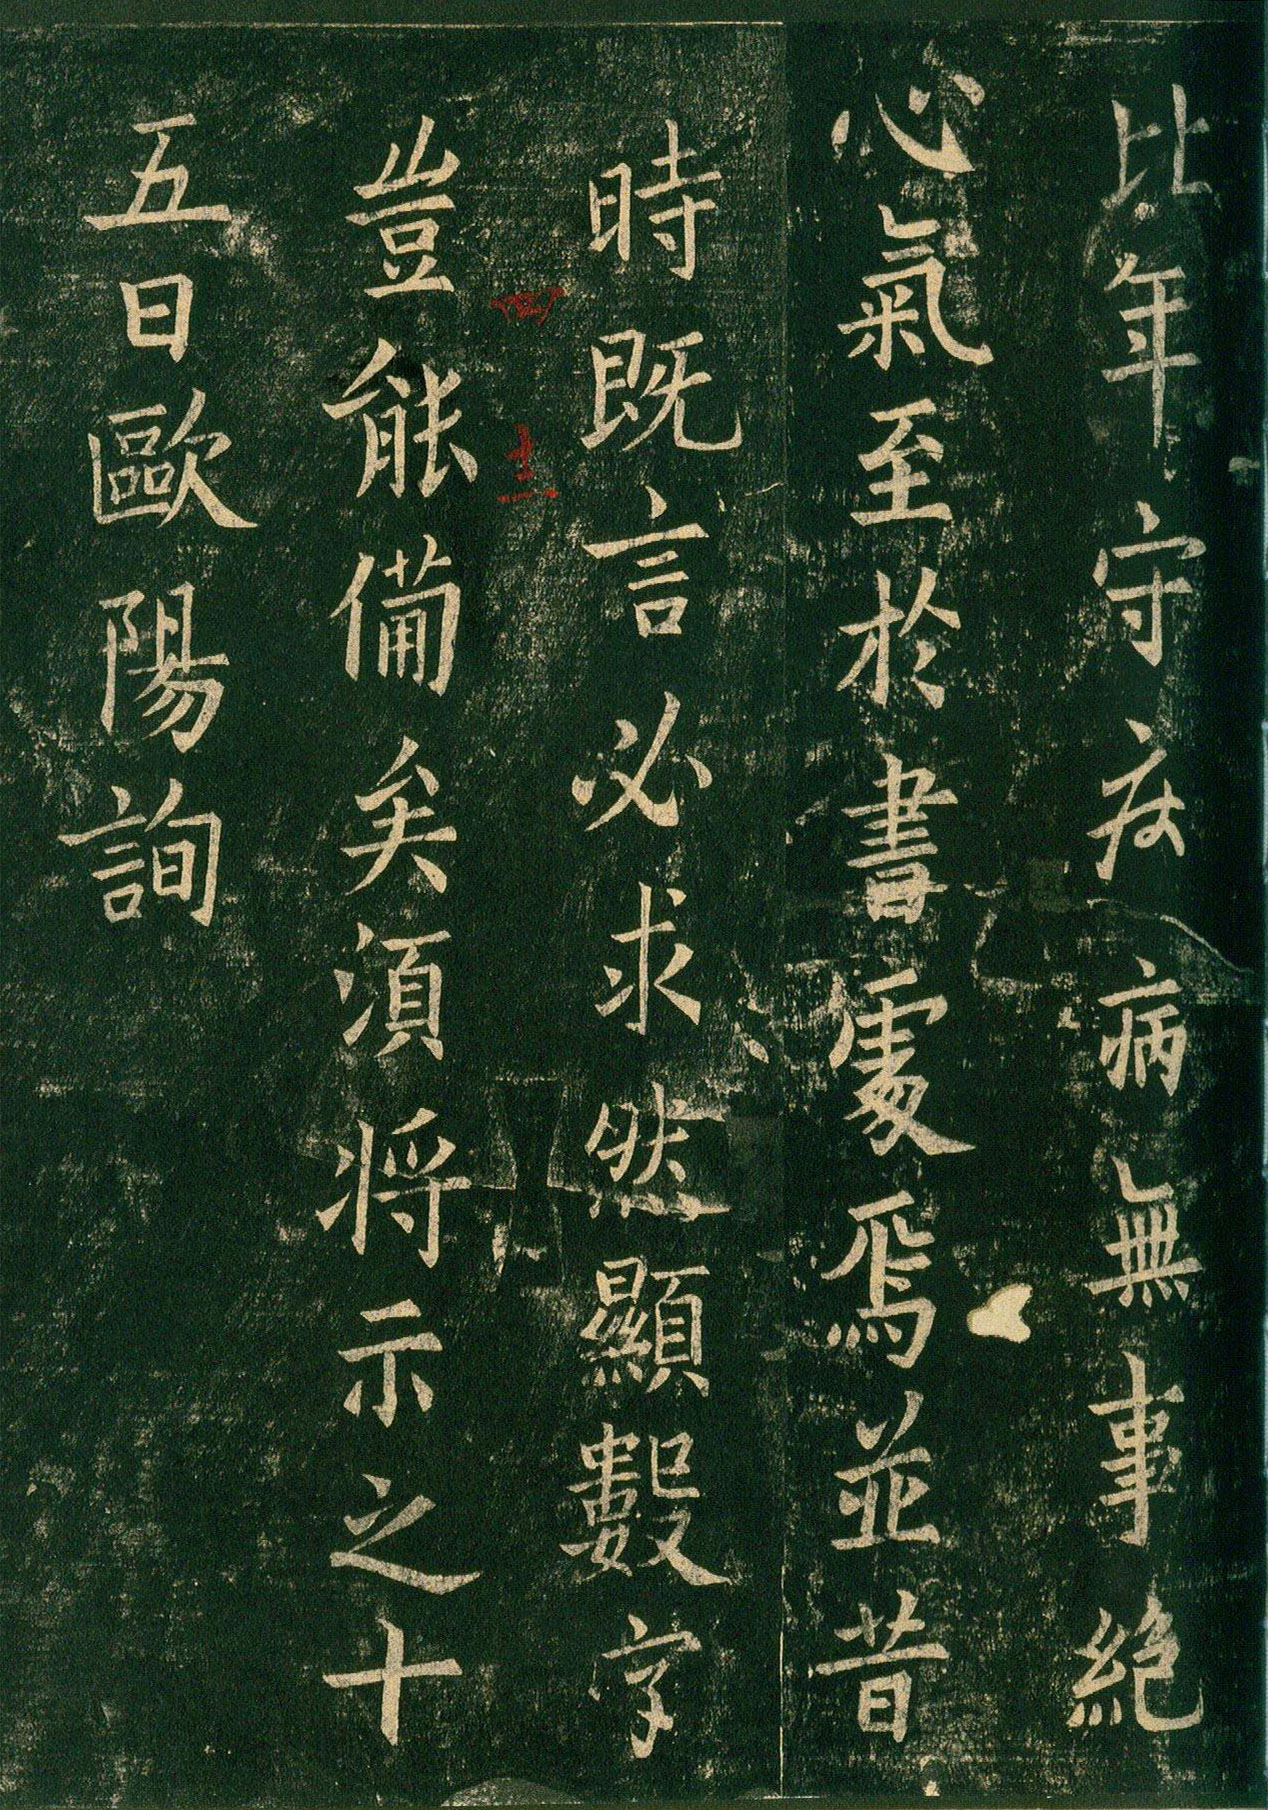 比年守疾病無事絶
心氣至於書處焉並昔
時既言必求然顯數字
豈能備矣須将示之十
五日歐陽詢